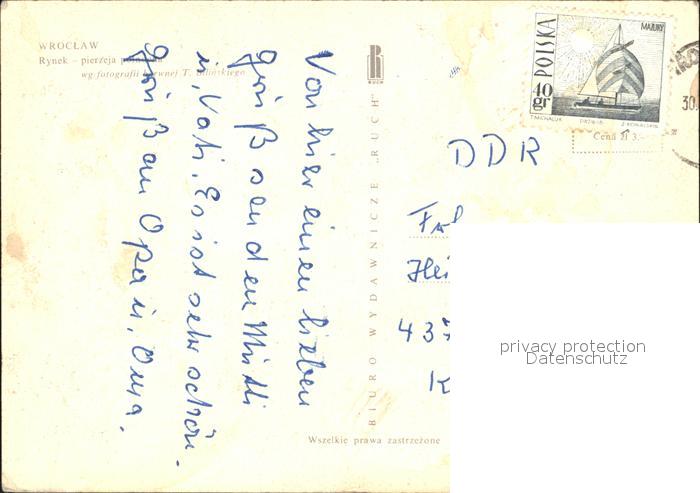 WROCŁAW
Rynek – pierzeja
wg fotografii T. Bilińskiego
RUCH
BIURO WYDAWNICZE „RUCH"
Wszelkie prawa zastrzeżone
POLSKA
40 gr
MAZURY
T. MICHALUK
Cena zł 3.–
30.
Von hier einen lieben
Gruß senden Mutti
u. Vati. Es ist sehr schön.
Gruß an Opa u. Oma.
DDR
Frl
Hei
437
K
privacy protection
Datenschutz